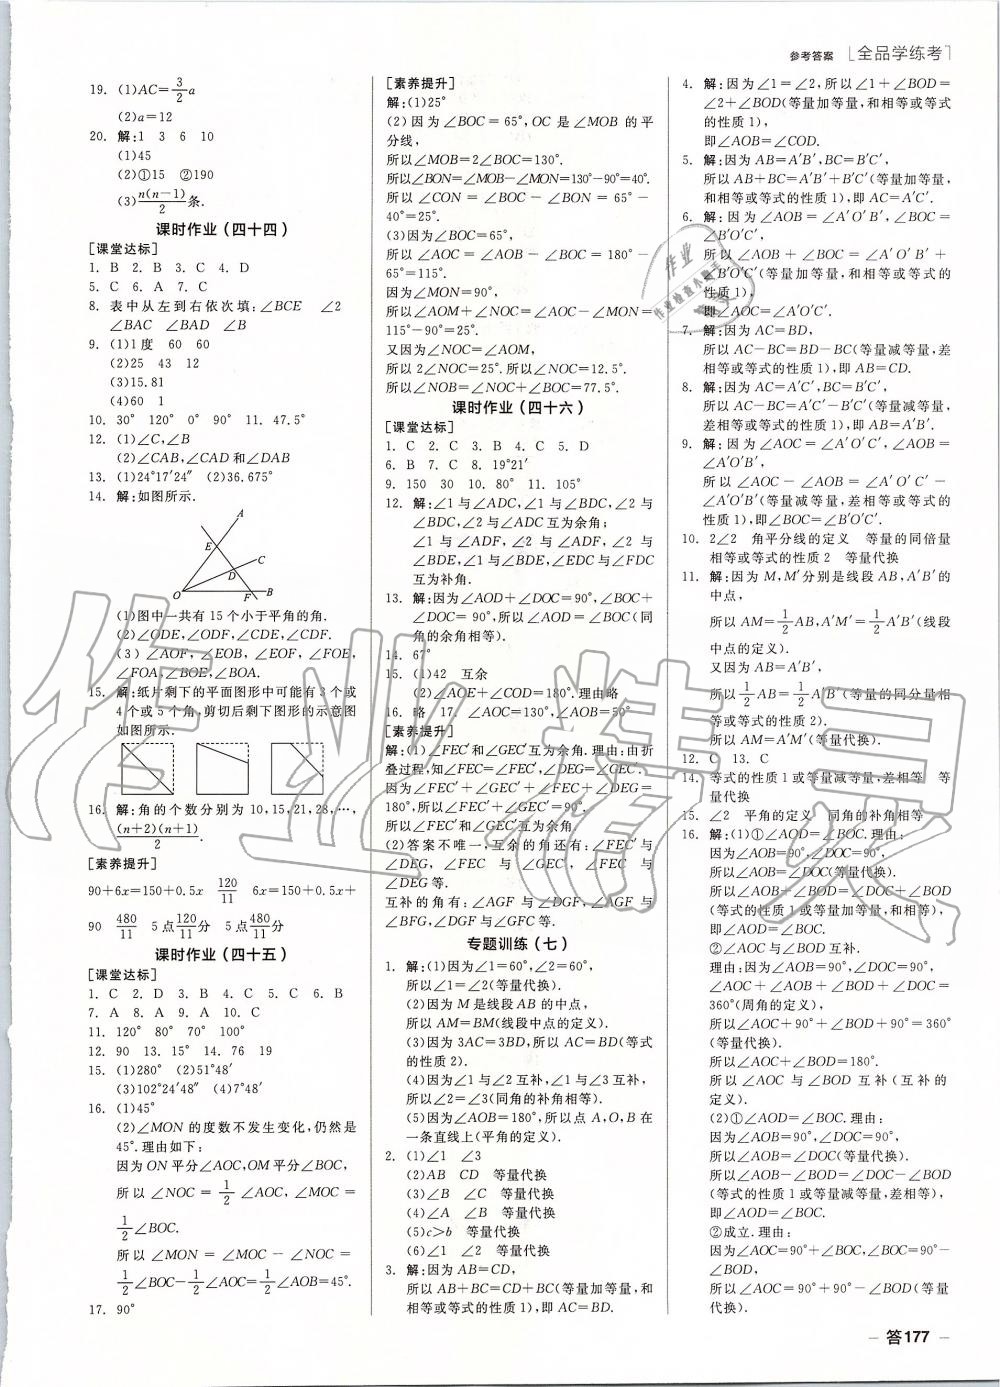 参考答案 [全品学练考]
19. (1)AC=3/2a
(2)a=12
20. 解:1 3 6 10
(1)45
(2)①15 ②190
(3)n(n-1)/2条.
课时作业(四十四)
[课堂达标]
1. B 2. B 3. C 4. D
5. C 6. A 7. C
8. 表中从左到右依次填:∠BCE ∠2
∠BAC ∠BAD ∠B
9. (1)1度 60 60
(2)25 43 12
(3)15.81
(4)60 1
10. 30° 120° 0° 90° 11. 47.5°
12. (1)∠C,∠B
(2)∠CAB,∠CAD和∠DAB
13. (1)24°17′24″ (2)36.675°
14. 解:如图所示.
A
E
C
D
O
F
B
(1)图中一共有15个小于平角的角.
(2)∠ODE,∠ODF,∠CDE,∠CDF.
(3)∠AOF,∠EOB,∠EOF,∠FOE,
∠FOA,∠BOE,∠BOA.
15. 解:纸片剩下的平面图形中可能有3个或
4个或5个角,剪切后剩下图形的示意图
如图所示.
16. 解:角的个数分别为10,15,21,28,…,
(n+2)(n+1)/2.
[素养提升]
90+6x=150+0.5x 120/11 6x=150+0.5x+
90 480/11 5点120/11分 5点480/11分
课时作业(四十五)
[课堂达标]
1. C 2. D 3. B 4. C 5. C 6. B
7. A 8. A 9. A 10. C
11. 120° 80° 70° 100°
12. 90 13. 15° 14. 76 19
15. (1)280° (2)51°48′
(3)102°24′48″ (4)7°48′
16. (1)45°
(2)∠MON的度数不发生变化,仍然是
45°.理由如下:
因为ON平分∠AOC,OM平分∠BOC,
所以∠NOC=1/2∠AOC,∠MOC=
1/2∠BOC.
所以∠MON=∠MOC-∠NOC=
1/2∠BOC-1/2∠AOC=1/2∠AOB=45°.
17. 90°
[素养提升]
解:(1)25°
(2)因为∠BOC=65°,OC是∠MOB的平
分线,
所以∠MOB=2∠BOC=130°.
所以∠BON=∠MOB-∠MON=130°-90°=40°.
所以∠CON=∠BOC-∠BON=65°-
40°=25°.
(3)因为∠BOC=65°,
所以∠AOC=∠AOB-∠BOC=180°-
65°=115°.
因为∠MON=90°,
所以∠AOM+∠NOC=∠AOC-∠MON=
115°-90°=25°.
又因为∠NOC=∠AOM,
所以2∠NOC=25°.所以∠NOC=12.5°.
所以∠NOB=∠NOC+∠BOC=77.5°.
课时作业(四十六)
[课堂达标]
1. C 2. C 3. B 4. C 5. D
6. B 7. C 8. 19°21′
9. 150 30 10. 80° 11. 105°
12. 解:∠1与∠ADC,∠1与∠BDC,∠2与
∠BDC,∠2与∠ADC互为余角;
∠1与∠ADF,∠2与∠ADF,∠2与
∠BDE,∠1与∠BDE,∠EDC与∠FDC
互为补角.
13. 解:因为∠AOD+∠DOC=90°,∠BOC+
∠DOC=90°,所以∠AOD=∠BOC(同
角的余角相等).
14. 67°
15. (1)42 互余
(2)∠AOE+∠COD=180°.理由略
16. 略 17. ∠AOC=130°,∠AOB=50°
[素养提升]
解:(1)∠FEC′和∠GEC′互为余角.理由:由折
叠过程,知∠FEC=∠FEC′,∠DEG=∠GEC′.
因为∠FEC′+∠GEC′+∠FEC+∠DEG=
180°,所以∠FEC′+∠GEC′=90°.
所以∠FEC′和∠GEC′互为余角.
(2)答案不唯一,互余的角还有:∠FEC′与
∠DEG,∠FEC与∠GEC′,∠FEC与
∠DEG等.
互补的角有:∠AGF与∠DGF,∠AGF与
∠BFG,∠DGF与∠GFC等.
专题训练(七)
1. 解:(1)因为∠1=60°,∠2=60°,
所以∠1=∠2(等量代换).
(2)因为M是线段AB的中点,
所以AM=BM(线段中点的定义).
(3)因为3AC=3BD,所以AC=BD(等式
的性质2).
(4)因为∠1与∠2互补,∠1与∠3互补,
所以∠2=∠3(同角的补角相等).
(5)因为∠AOB=180°,所以点A,O,B在
一条直线上(平角的定义).
2. (1)∠1 ∠3
(2)AB CD 等量代换
(3)∠B ∠C 等量代换
(4)∠A ∠B 等量代换
(5)c>b 等量代换
(6)∠1 ∠2 等量代换
3. 解:因为AB=CD,
所以AB+BC=CD+BC(等量加等量,和
相等或等式的性质1),即AC=BD.
4. 解:因为∠1=∠2,所以∠1+∠BOD=
∠2+∠BOD(等量加等量,和相等或等式
的性质1),
即∠AOB=∠COD.
5. 解:因为AB=A′B′,BC=B′C′,
所以AB+BC=A′B′+B′C′(等量加等量,
和相等或等式的性质1),即AC=A′C′.
6. 解:因为∠AOB=∠A′O′B′,∠BOC=
∠B′O′C′,
所以∠AOB+∠BOC=∠A′O′B′+
∠B′O′C′(等量加等量,和相等或等式的
性质1),
即∠AOC=∠A′O′C′.
7. 解:因为AC=BD,
所以AC-BC=BD-BC(等量减等量,差
相等或等式的性质1),即AB=CD.
8. 解:因为AC=A′C′,BC=B′C′,
所以AC-BC=A′C′-B′C′(等量减等量,
差相等或等式的性质1),即AB=A′B′.
9. 解:因为∠AOC=∠A′O′C′,∠AOB=
∠A′O′B′,
所以∠AOC-∠AOB=∠A′O′C′-
∠A′O′B′(等量减等量,差相等或等式的
性质1),即∠BOC=∠B′O′C′.
10. 2∠2 角平分线的定义 等量的同倍量
相等或等式的性质2 等量代换
11. 解:因为M,M′分别是线段AB,A′B′的
中点,
所以AM=1/2AB,A′M′=1/2A′B′(线段
中点的定义).
又因为AB=A′B′,
所以1/2AB=1/2A′B′(等量的同分量相
等或等式的性质2).
所以AM=A′M′(等量代换).
12. C 13. C
14. 等式的性质1或等量减等量,差相等 等
量代换
15. ∠2 平角的定义 同角的补角相等
16. 解:(1)①∠AOD=∠BOC.理由:
因为∠AOB=90°,∠DOC=90°,
所以∠AOB=∠DOC(等量代换).
所以∠AOB+∠BOD=∠DOC+∠BOD
(等式的性质1或等量加等量,和相等),
即∠AOD=∠BOC.
②∠AOC与∠BOD互补.
理由:因为∠AOB=90°,∠DOC=90°,
∠AOC+∠AOB+∠BOD+∠DOC=
360°(周角的定义),
所以∠AOC+90°+∠BOD+90°=360°
(等量代换).
所以∠AOC+∠BOD=180°.
所以∠AOC与∠BOD互补(互补的
定义).
(2)①∠AOD=∠BOC.理由:
因为∠AOB=90°,∠DOC=90°,
所以∠AOB=∠DOC(等量代换).
所以∠AOB-∠BOD=∠DOC-∠BOD
(等式的性质1或等量减等量,差相等),
即∠AOD=∠BOC.
②成立.理由:
因为∠AOC=90°+∠BOC,∠BOC=90°-
∠BOD,
所以∠AOC=90°+90°-∠BOD(等量
代换).
答177
作业精灵